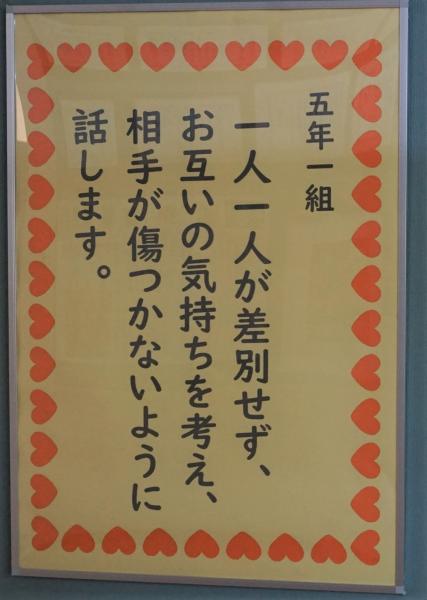 五年一組
一人一人が差別せず、
お互いの気持ちを考え、
相手が傷つかないように
話します。